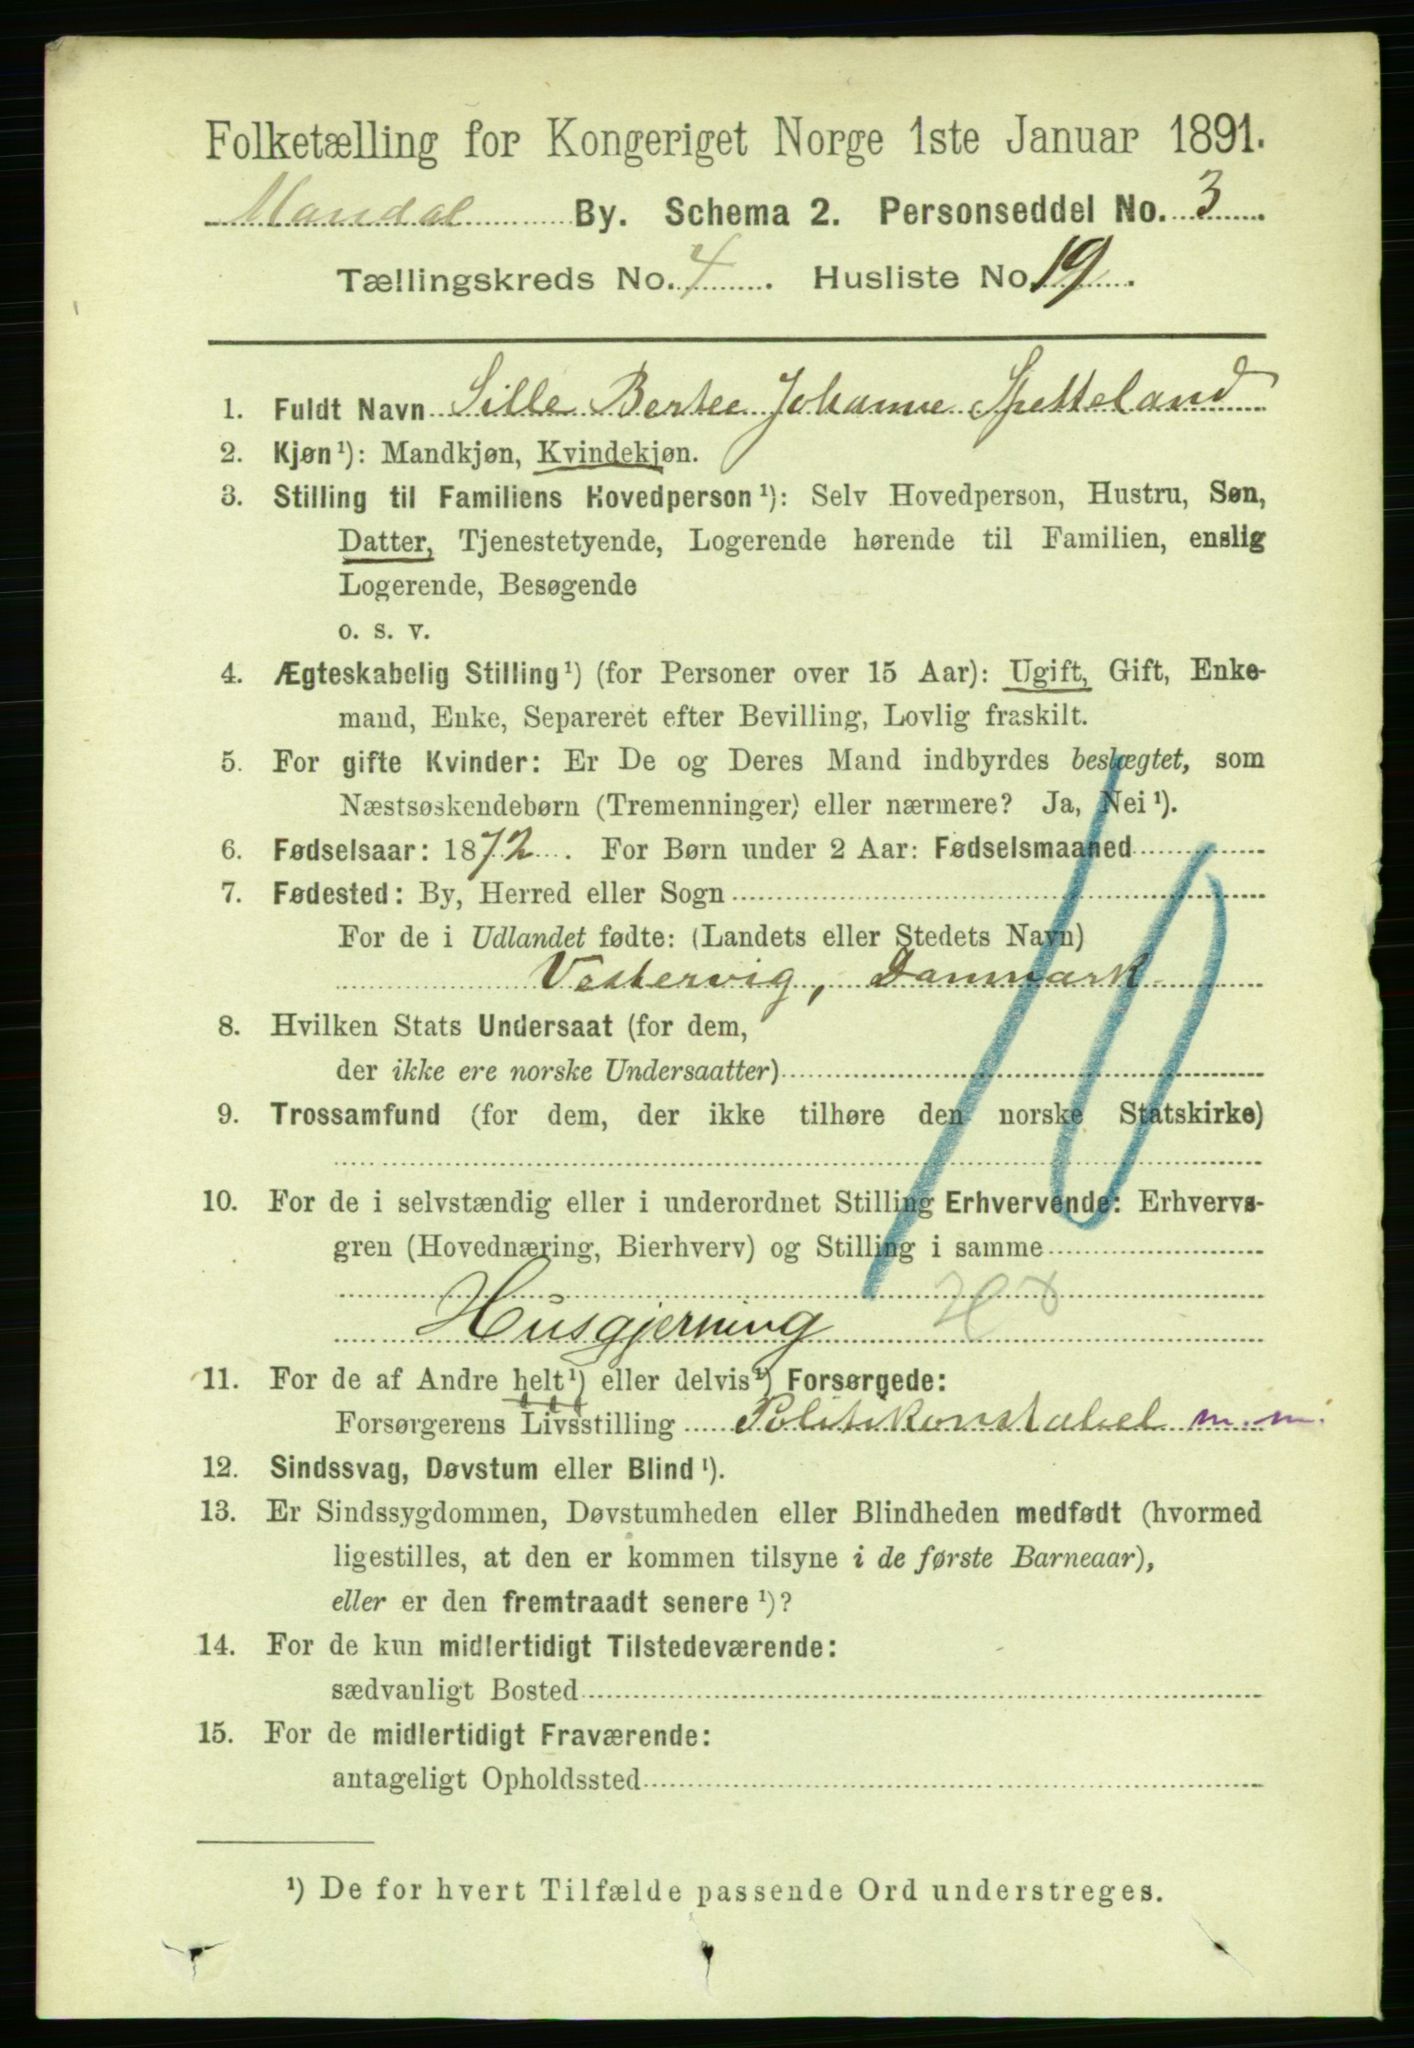 Folketælling for Kongeriget Norge 1ste Januar 1891.
Mandal By. Schema 2. Personseddel No. 3
Tællingskreds No. 4. Husliste No 19.
1. Fuldt Navn Sille Bertee Johanne Spetteland
2. Kjøn¹): Mandkjøn, Kvindekjøn.
3. Stilling til Familiens Hovedperson¹): Selv Hovedperson, Hustru, Søn,
Datter, Tjenestetyende, Logerende hørende til Familien, enslig
Logerende, Besøgende
o. s. v.
4. Ægteskabelig Stilling¹) (for Personer over 15 Aar): Ugift, Gift, Enke-
mand, Enke, Separeret efter Bevilling, Lovlig fraskilt.
5. For gifte Kvinder: Er De og Deres Mand indbyrdes beslægtet, som
Næstsøskendebørn (Tremenninger) eller nærmere? Ja, Nei¹).
6. Fødselsaar: 1872. For Børn under 2 Aar: Fødselsmaaned
7. Fødested: By, Herred eller Sogn
For de i Udlandet fødte: (Landets eller Stedets Navn)
Vestervig, Danmark
8. Hvilken Stats Undersaat (for dem,
der ikke ere norske Undersaatter)
9. Trossamfund (for dem, der ikke tilhøre den norske Statskirke)
10
10. For de i selvstændig eller i underordnet Stilling Erhvervende: Erhvervs-
gren (Hovednæring, Bierhverv) og Stilling i samme
Husgjerning
11. For de af Andre helt¹) eller delvis¹) Forsørgede:
Forsørgerens Livsstilling Politikonstabel m. m.
12. Sindssvag, Døvstum eller Blind¹).
13. Er Sindssygdommen, Døvstumheden eller Blindheden medfødt (hvormed
ligestilles, at den er kommen tilsyne i de første Barneaar),
eller er den fremtraadt senere¹)?
14. For de kun midlertidigt Tilstedeværende:
sædvanligt Bosted
15. For de midlertidigt Fraværende:
antageligt Opholdssted
¹) De for hvert Tilfælde passende Ord understreges.